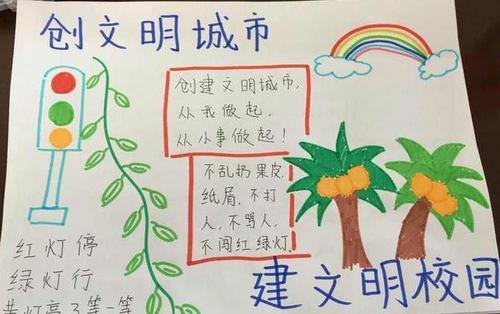 创文明城市
创建文明城市,
从我做起,
从小事做起!
不乱扔果皮
纸屑、不打
人,不骂人,
不闯红绿灯.
红灯停
绿灯行
黄灯亭了等一等
建文明校园